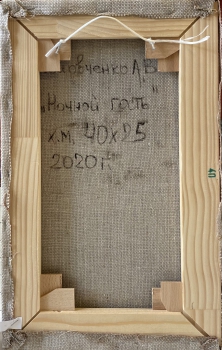 овченко А.В
„Ночной гость"
х.м. 40х25
2020 г.